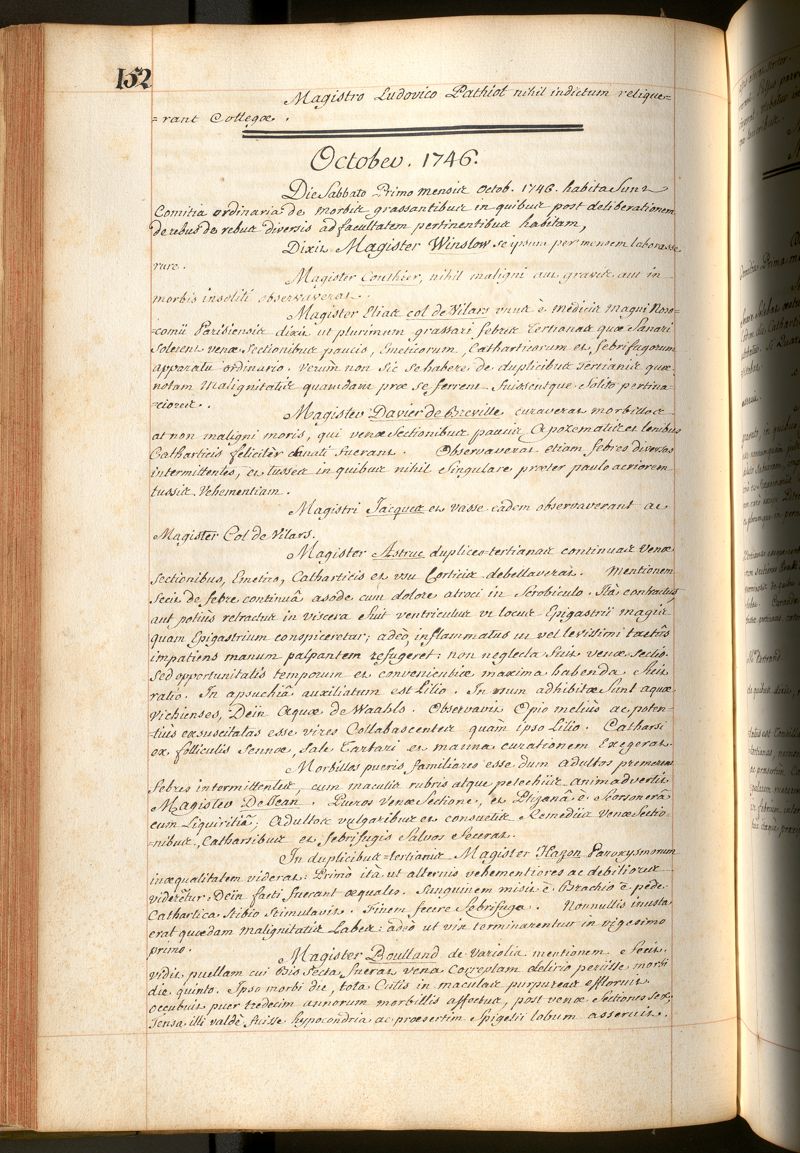 152
Magistro Ludovico Pathiot nihil indictum relique=
=rant Collegæ.
October. 1746.
Die Sabbato Primo mensis Octob. 1746. habita Sunt
Comitia ordinaria de morbis grassantibus in quibus post deliberationem
de rebus de rebus diversis ad facultatem pertinentibus habitam,
Dixit Magister Winslow se ipsum per mensem laborasse
rure.
Magister Couthier, nihil maligni aut gravis aut in
morbis insoliti observaverat.
Magister Elias col de Vilars unus è medicis magni Noso=
=comii Parisiensis dixit ut plurimum grassari febres tertianas quæ Sanari
Solerent venæ Sectionibus paucis, Emeticorum, Catharticorum et febrifugorum
apparatu ordinario. verùm non sic se habere de duplicibus tertianis quæ
notam malignitatis quamdam præ se ferrent fuissentque Solito pertina=
=ciores.
Magister Davier de Breville curaverat morbillos
at non maligni moris, qui venæ Sectionibus paucis Apozematis et lenibus
Catharticis feliciter Sanati fuerant. Observaverat etiam febres diversas
intermittentes, et tusses in quibus nihil Singulare præter paulo acriorem
tussis vehementiam.
Magistri Jacques et vasse eadem observaverant ac
Magister Col de Vilars.
Magister Astruc duplices-tertianas continuas venæ
Sectionibus, Emetico, Catharticis et usu Corticis debellaverat. Mentionem
fecit de febre continuâ asode cum dolore atroci in Scrobiculo. Ita contractus
aut potius retractus in viscera fuit ventriculus ut locus Epigastrii magis
quam Epigastrium conspiceretur; adeò inflammatus ut vel levissimi tactûs
impatiens manum palpantem refugeret: non neglecta fuit venæ sectio
Sed opportunitatis temporum et convenientiæ maxima habenda fuit
ratio. In apsuchiâ auxiliatum est Lilio. In usum adhibitæ Sunt aquæ
Vichienses, Dein Aquæ de Waahlo. Observavit Opio melius ac poten=
=tius exsuscitatas esse vires Collabascentes quàm ipso Lilio. Catharsi
ex folliculis Sennæ, Sale Tartari et manna curationem Exegerat.
Morbillos pueris familiares esse dum adultos premerent
febres intermittentes, cum maculis rubris atque petechiis animadvertit
Magister Dejean. Pueros venæ Sectione, et Ptisanâ è Scorsonerâ
cum Liquiritiâ; adultos vulgaribus et consuetis Remediis venæ Sectio=
=nibus, Catharsibus et febrifugis Salvos fecerat.
In duplicibus-tertianis Magister Hazon Paroxysmorum
inæqualitatem viderat: Primo itâ ut alternis vehementiores ac debiliores
viderêtur: Dein facti fuerant æquales. Sanguinem misit è Brachio è pede.
Cathartica Stibio Stimulavit. Finem fecere febrifuga. Nonnullis inusta
erat quædam malignitatis Labes: adeò ut vix terminarentur in vigesimo
primo.
Magister Boulland de Variolis mentionem fecit.
vidit puellam cui bis Secta fuerat vena Correptam delirio periisse morbi
die quinto. Ipso morbi die, tota Cutis in maculas purpureas effloruit.
occubuit puer tredecim annorum morbillis affectus, post venæ Sectiones sex;
Tensa illi valdè fuisse hypocondria ac præsertim Spigelii lobum asseruit.